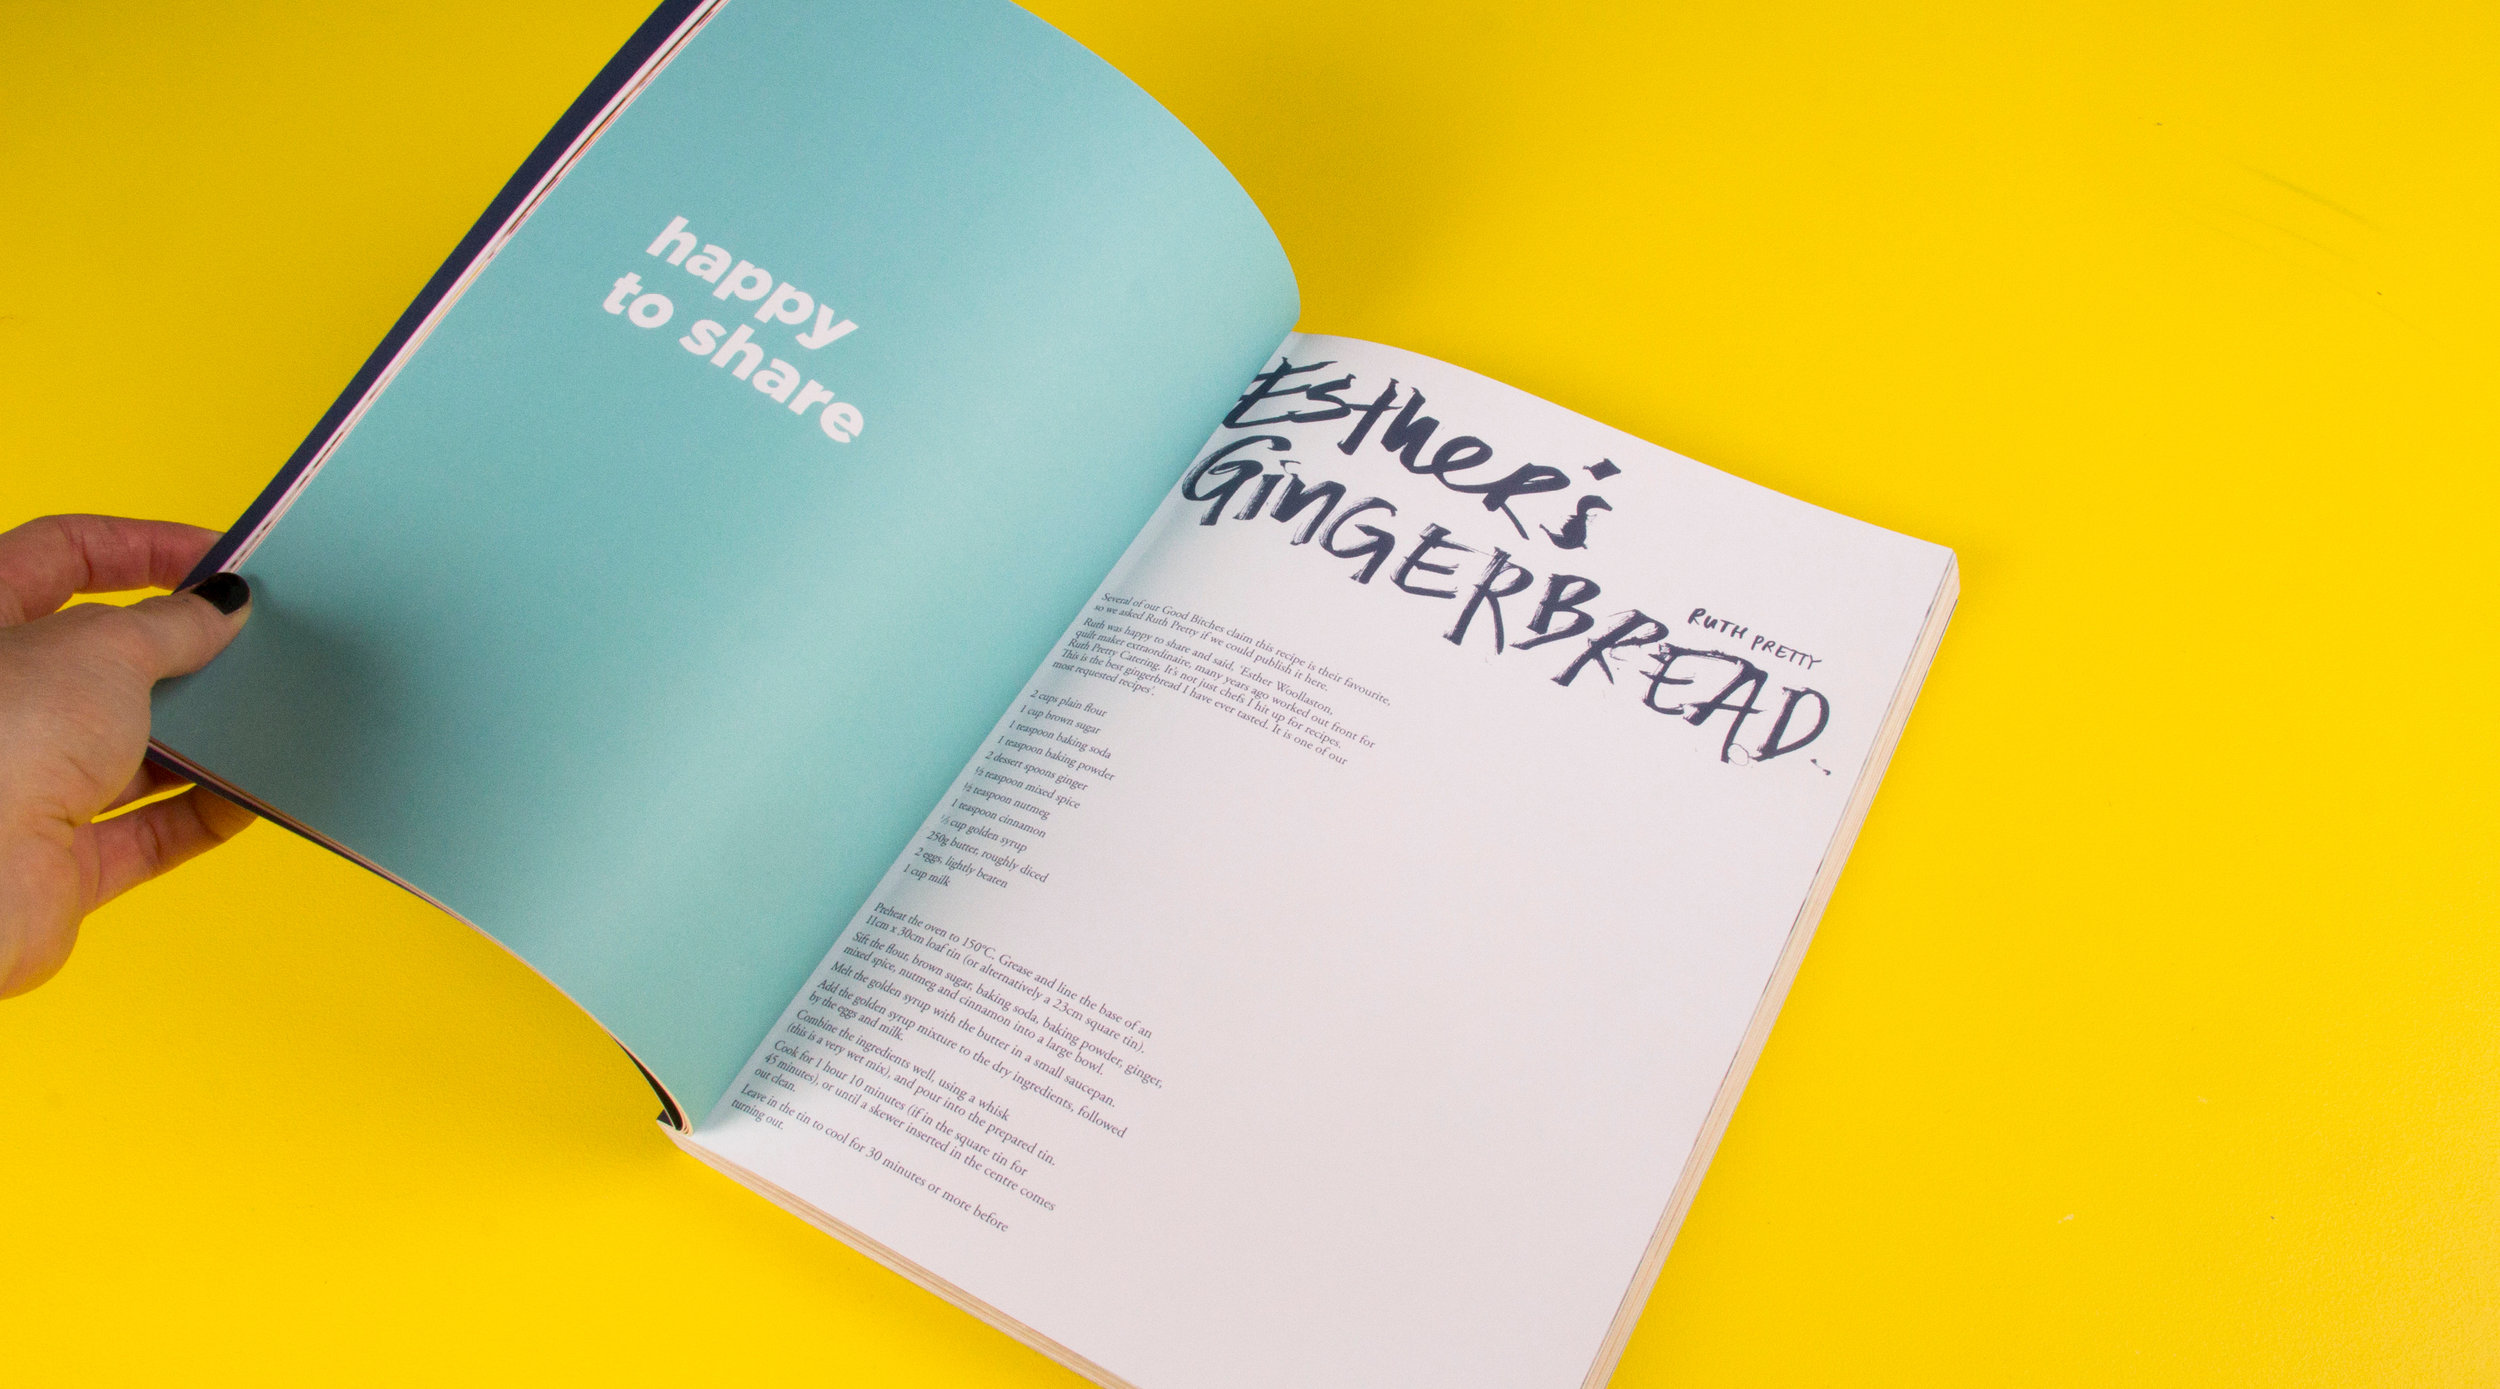 happy
to share
Esther's
GINGERBREAD
RUTH PRETTY
Several of our Good Bitches claim this recipe is their favourite,
so we asked Ruth Pretty if we could publish it here.
Ruth was happy to share and said, 'Esther Woollaston,
quilt maker extraordinaire, many years ago worked out front for
Ruth Pretty Catering. It's not just chefs I hit up for recipes.
This is the best gingerbread I have ever tasted. It is one of our
most requested recipes'.
2 cups plain flour
1 cup brown sugar
1 teaspoon baking soda
1 teaspoon baking powder
2 dessert spoons ginger
½ teaspoon mixed spice
½ teaspoon nutmeg
1 teaspoon cinnamon
cup golden syrup
250g butter, roughly diced
2 eggs, lightly beaten
1 cup milk
Preheat the oven to 150°C. Grease and line the base of an
11cm x 30cm loaf tin (or alternatively a 23cm square tin).
Sift the flour, brown sugar, baking soda, baking powder, ginger,
mixed spice, nutmeg and cinnamon into a large bowl.
Melt the golden syrup with the butter in a small saucepan.
Add the golden syrup mixture to the dry ingredients, followed
by the eggs and milk.
Combine the ingredients well, using a whisk
(this is a very wet mix), and pour into the prepared tin.
Cook for 1 hour 10 minutes (if in the square tin for
45 minutes), or until a skewer inserted in the centre comes
out clean.
Leave in the tin to cool for 30 minutes or more before
turning out.